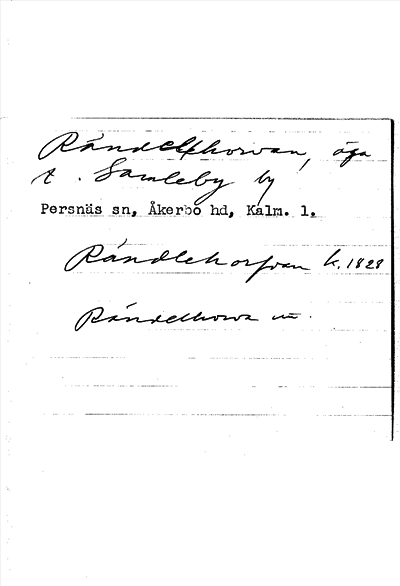 Rändelkhorvan, äga
t. Samleby by
Persnäs sn, Åkerbo hd, Kalm. l.
Rändlekorfvan k. 1828
Rändelhorva